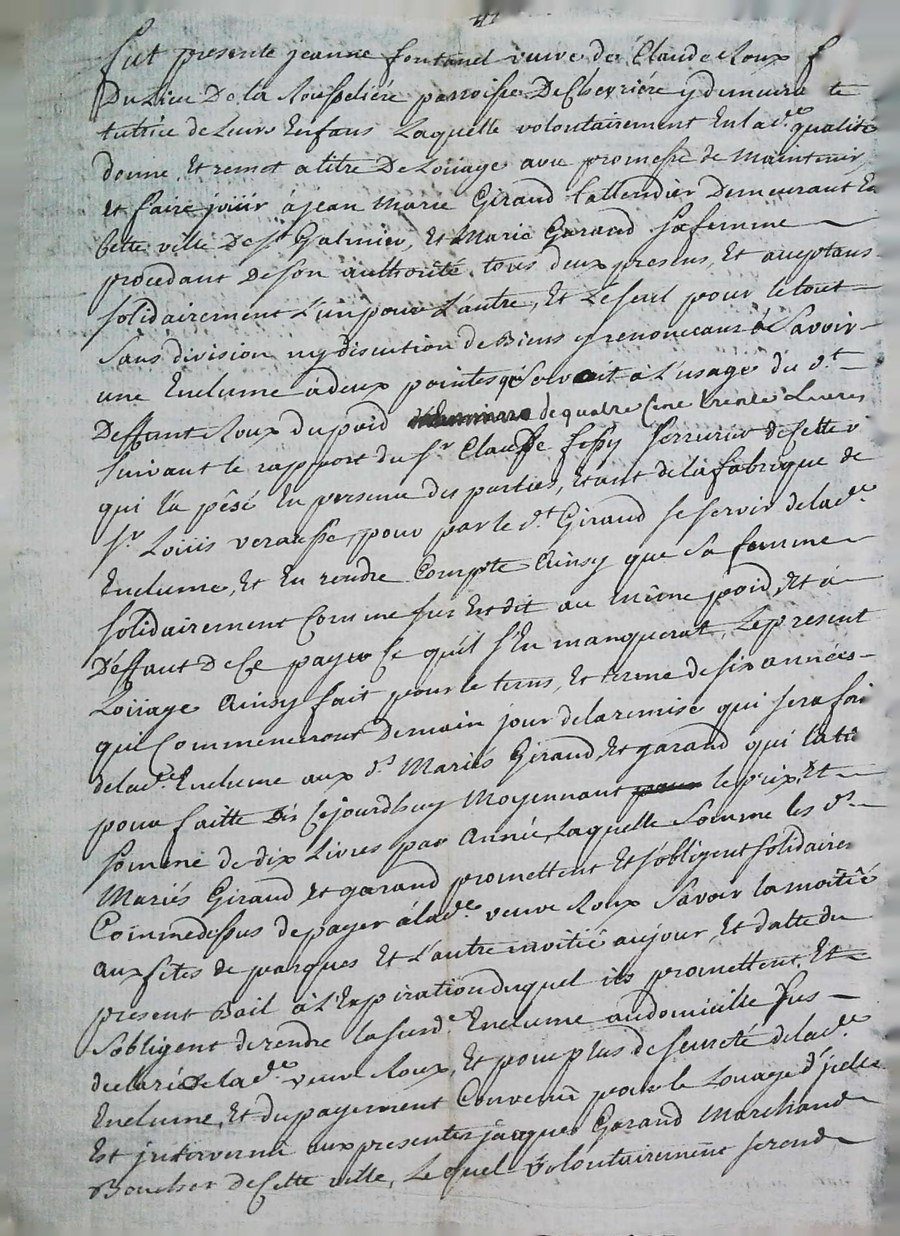 fut presente jeanne fontanel veuve de Claude Roux
Du Lieu De la Rousseliére parroisse De Chevriére y demeura te
tutrice de Leurs Enfans Laquelle volontairement En lad.e qualité
donne, Et remet a titre De Loüage avec promesse de Maintenir
et faire joüir à jean Marie Giraud taillendier Demeurant En
Cette ville De St Galmier, Et Marie Garand sa femme
procedant De son authorité tous deux presens, Et aceptans
solidairement L'un pour L'autre, Et Le seul pour le tout
Sans division ny discution de Biens y renoncans à Savoir
une Enclume à deux pointes qui servoit à L'usage du d.t
Deffunt Roux du poid de quatre Cent trente Livres
suivant le rapport du Sr Claude fessy serrurier de Cette v
qui l'a pêsé En presence des parties, Etant de la fabrique de
Sr Loüis verausse, pour par le d.t Giraud se servir de lad.e
Enclume, Et En rendre Compte Ainsy que Sa femme
solidairement Comme sus Est dit au même poid, Et à
Déffaut De Ce payer Ce qu'il s'En manquerat, Le present
Loüage Ainsy fait pour le tems, Et terme de six années
qui Commenceront Demain jour de la remise qui sera fai
de lad.e Enclume aux d.s Mariés Giraud, Et garand qui l'a
pour faitte Dés Cejourdhuy Moyennant le prix, Et
somme de dix Livres par Année, Laquelle Somme les d.s
Mariés Giraud, Et garand promettent Et s'obligent solidaires
Comme dessus de payer à lad.e veuve Roux Savoir la moitié
aux fêtes de paques Et L'autre moitié au jour, Et datte du
present Bail à L'Expiration duquel ils promettent, Et
s'obligent de rendre la susd.e Enclume au domicille sus
declaré De lad.e veuve Roux, Et pour plus de seureté de lad.e
Enclume, Et du payement Convenu pour le Loüage d'jcelle
Est jntervenu aux presentes jacques Garand Marchand
Boucher de Cette ville, Lequel volontairement se rend